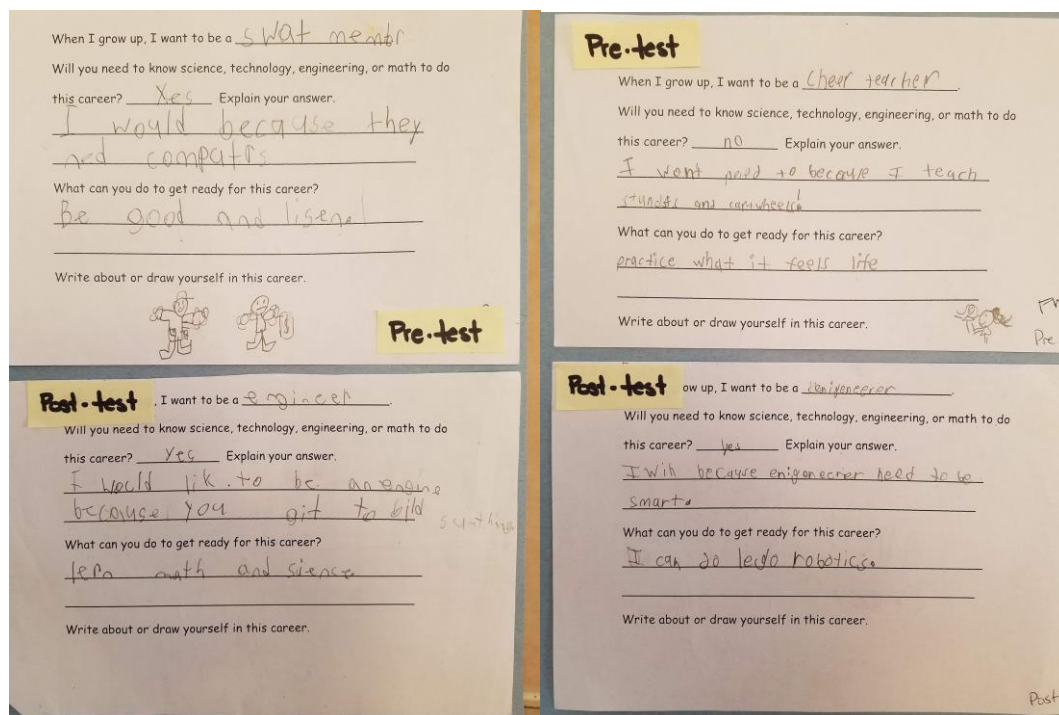 When I grow up, I want to be a swat membr
Will you need to know science, technology, engineering, or math to do
this career? Yes Explain your answer.
I would because they
ned computrs
What can you do to get ready for this career?
Be good and lisen
Write about or draw yourself in this career.
Pre-test
Pre-test
When I grow up, I want to be a Cheer teacher.
Will you need to know science, technology, engineering, or math to do
this career? no Explain your answer.
I wont need to because I teach
stundts and carwheels
What can you do to get ready for this career?
practice what it feels life
Write about or draw yourself in this career.
Pre
Post-test , I want to be a engineer.
Will you need to know science, technology, engineering, or math to do
this career? Yes Explain your answer.
I would lik to be an engine
because you git to bild
What can you do to get ready for this career?
lern math and sience
Write about or draw yourself in this career.
Post-test ow up, I want to be a
Will you need to know science, technology, engineering, or math to do
this career? yes Explain your answer.
I will because enigenecrer need to be
smart.
What can you do to get ready for this career?
I can do lego robotics.
Write about or draw yourself in this career.
Post